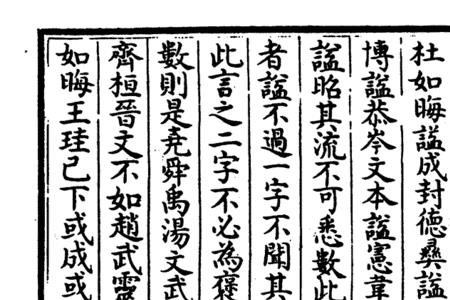 杜如晦謚成封德彝謚
博謚恭岑文本謚憲韋
謚昭其流不可悉數此
者謚不過一字不聞其
此言之二字不必為褒
數則是堯舜禹湯文武
齊桓晉文不如趙武靈
如晦王珪已下或成或